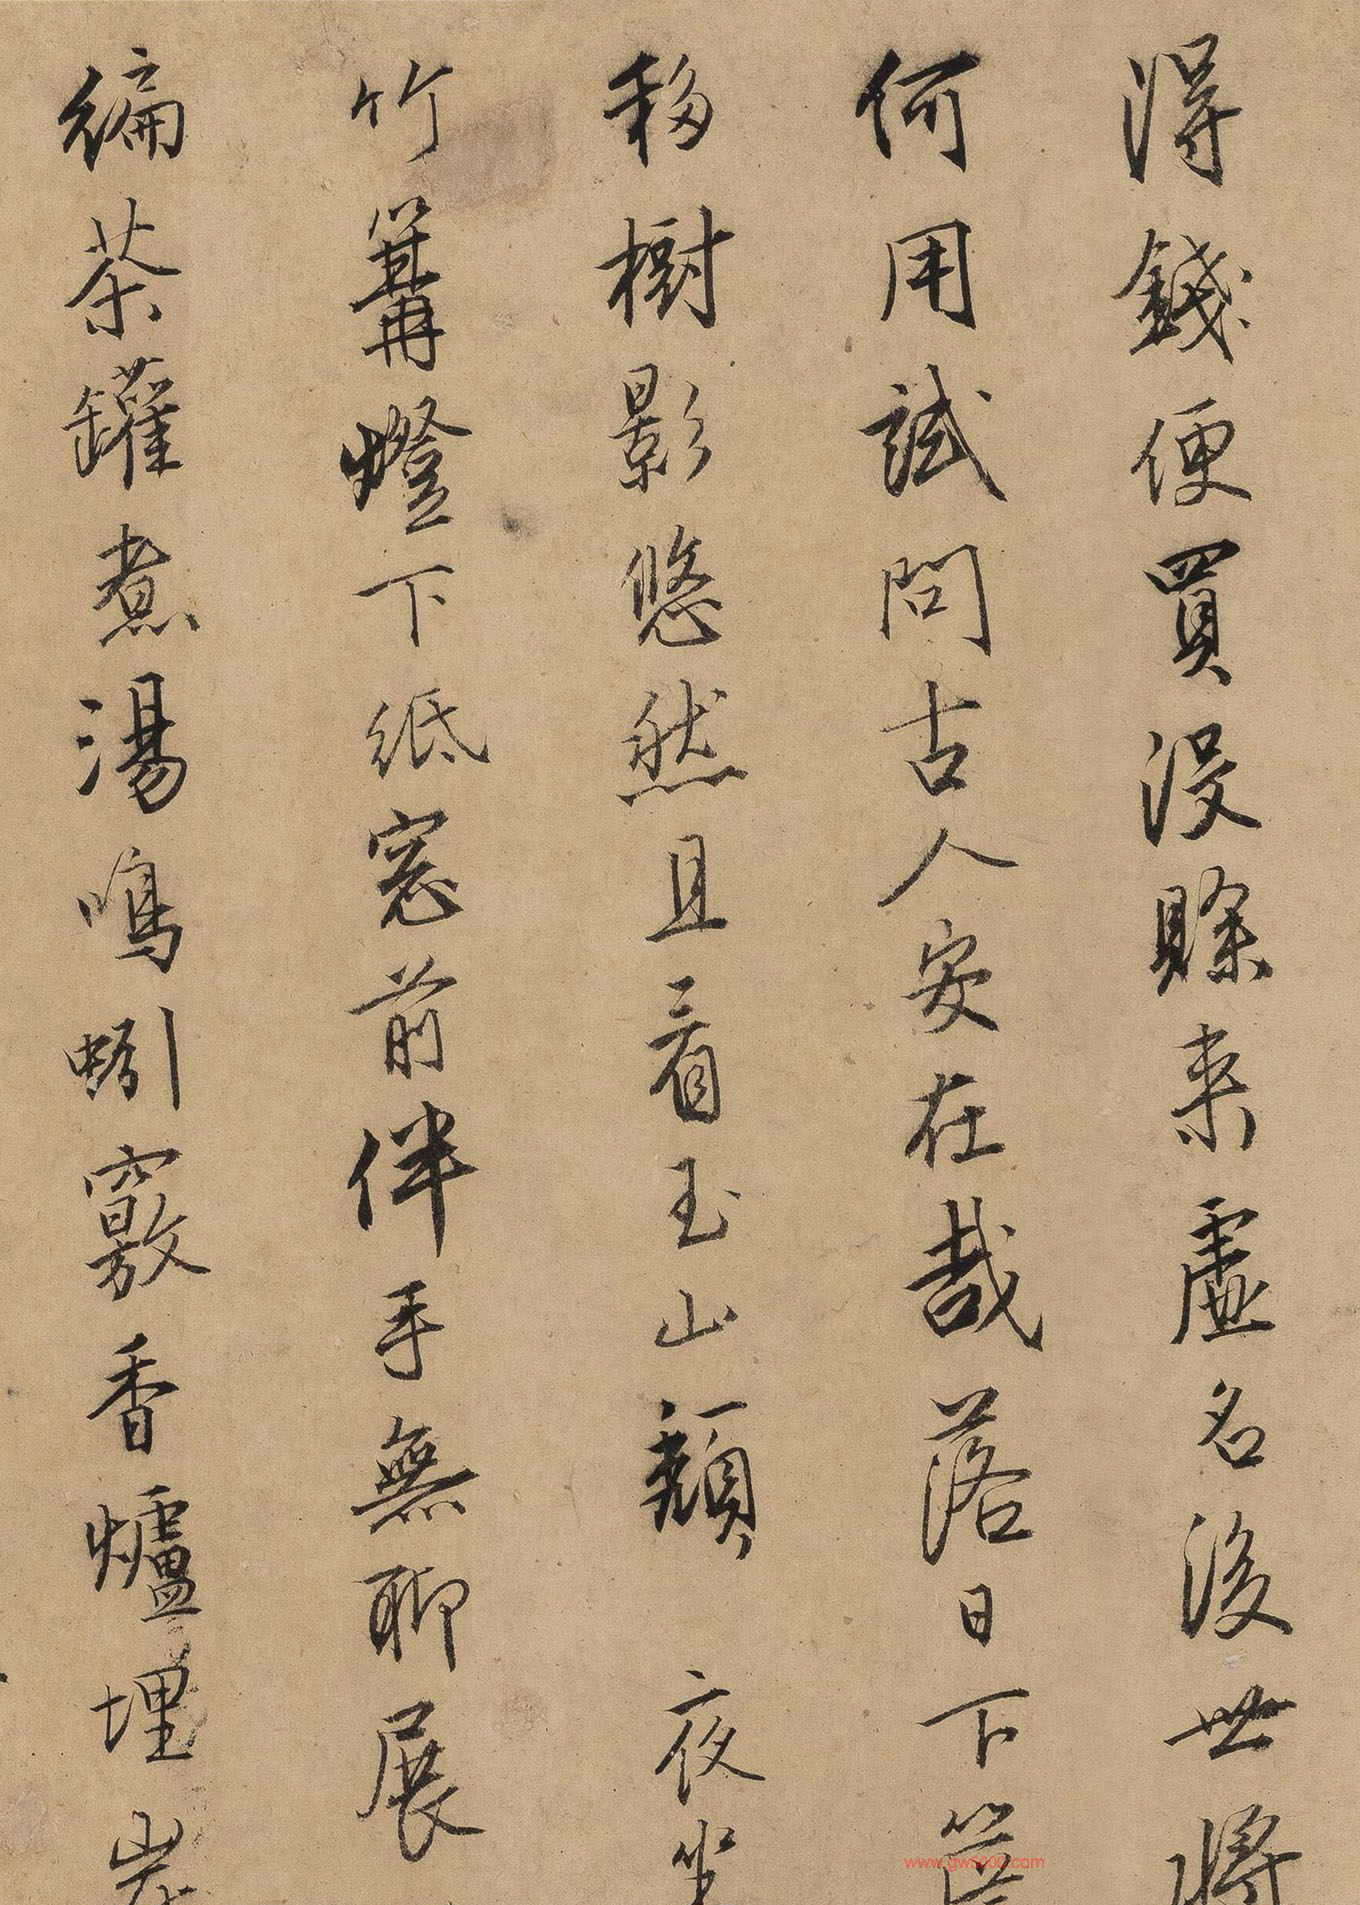 得錢便買沒賒来虛名後世將
何用試問古人安在哉落日下
移樹影悠然且看玉山頹 夜坐
竹篝燈下紙窓前伴手無聊展
編茶罐煮湯鳴蚓竅香爐埋炭
www.gw5000.com